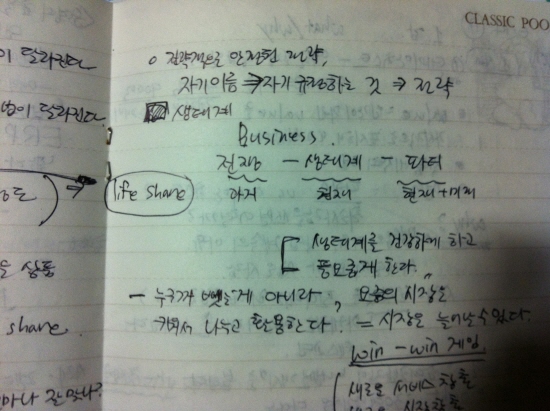 CLASSIC POO
이 달라진다.
o 전략적으로 안정된 전략,
자기이름 ⇒ 자기 규정하는 것 ⇒ 전략
이 달라진다.
생태계
Business.
전쟁 — 생태계 — 파티
life share
아저 현재 현재+미래
[ 생태계를 건강하게 하고
풍요롭게 한다.
상품
— 누구꺼 뺏는게 아니라, 모두의 시장을
키워서 나누고 활용한다 = 시장은 늘어날 수 있다.
share.
win - win 게임
마나 잘 맞나?
새로운 서비스 창출
새로운 시장창출